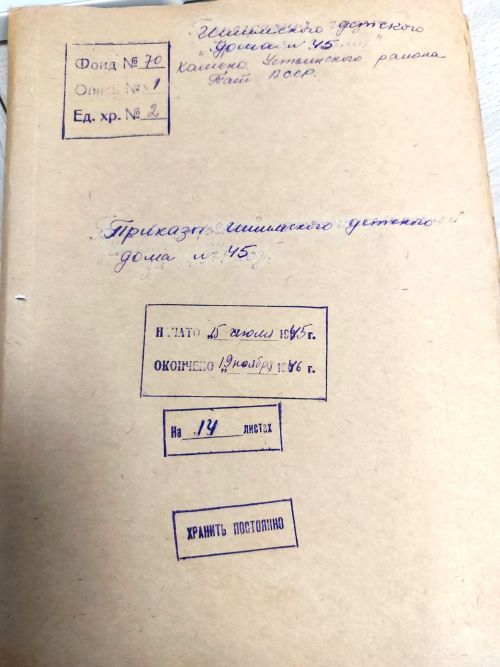 Фонд № 70
Опись № 1
Ед. хр. № 2
Шишмского детского
"дома № 45"
Камско Устьинского района
Тат АССР.
Приказы Шишмского детского
дома № 45.
НАЧАТО „5 июля 1945 г.
ОКОНЧЕНО „19 ноября 1946 г.
На 14 листах
ХРАНИТЬ ПОСТОЯННО